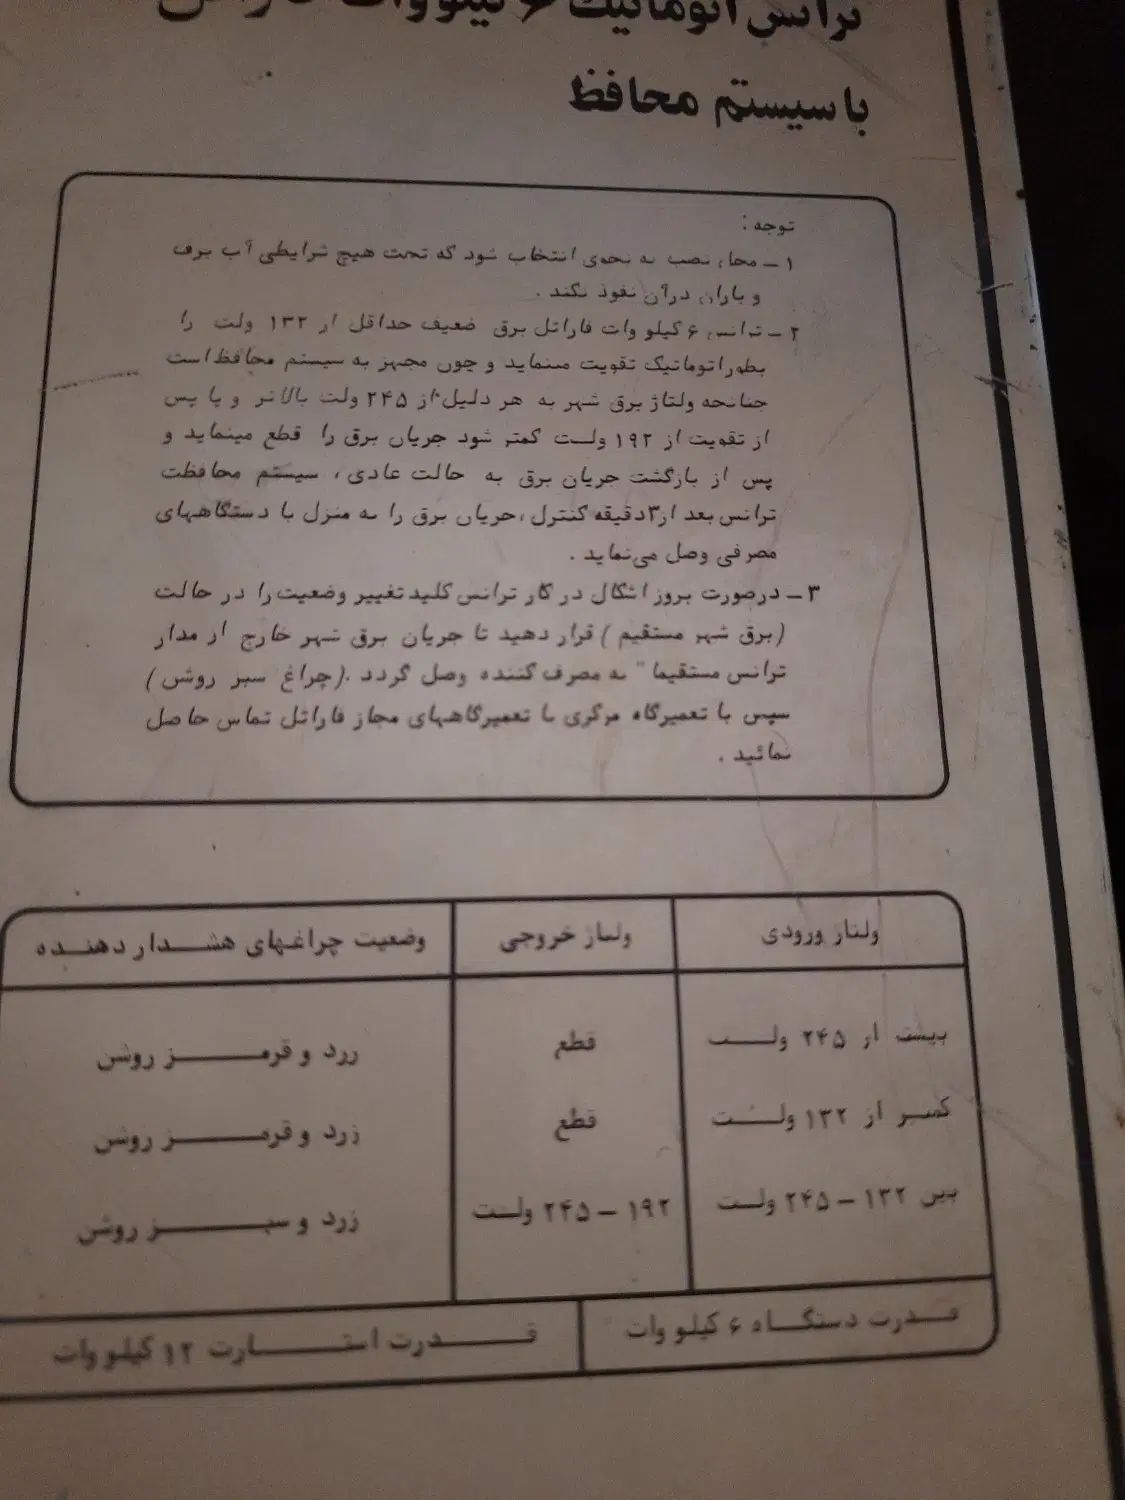 ترانس اتوماتیک ۶ کیلو وات
با سیستم محافظ
توجه :
۱ – محل نصب به نحوی انتخاب شود که تحت هیچ شرایطی آب برف
و باران در آن نفوذ نکند .
۲ – ترانس ۶ کیلو وات فاراتل برق ضعیف حداقل از ۱۳۲ ولت را
بطور اتوماتیک تقویت مینماید و چون مجهز به سیستم محافظ است
چنانچه ولتاژ برق شهر به هر دلیل از ۲۴۵ ولت بالاتر و یا پس
از تقویت از ۱۹۲ ولت کمتر شود جریان برق را قطع مینماید و
پس از بازگشت جریان برق به حالت عادی ، سیستم محافظت
ترانس بعد از ۳ دقیقه کنترل ، جریان برق را به منزل یا دستگاههای
مصرفی وصل می‌نماید .
۳ – در صورت بروز اشکال در کار ترانس کلید تغییر وضعیت را در حالت
(برق شهر مستقیم ) قرار دهید تا جریان برق شهر خارج از مدار
ترانس مستقیما" به مصرف کننده وصل گردد .(چراغ سبز روشن )
سپس با تعمیرگاه مرکزی یا تعمیرگاههای مجاز فاراتل تماس حاصل
نمائید .
ولتاژ ورودی ولتاژ خروجی وضعیت چراغهای هشدار دهنده
بیشتر از ۲۴۵ ولت قطع زرد و قرمز روشن
کمتر از ۱۳۲ ولت قطع زرد و قرمز روشن
بین ۱۳۲ – ۲۴۵ ولت ۱۹۲ – ۲۴۵ ولت زرد و سبز روشن
قدرت دستگاه ۶ کیلو وات قدرت استارت ۱۲ کیلو وات